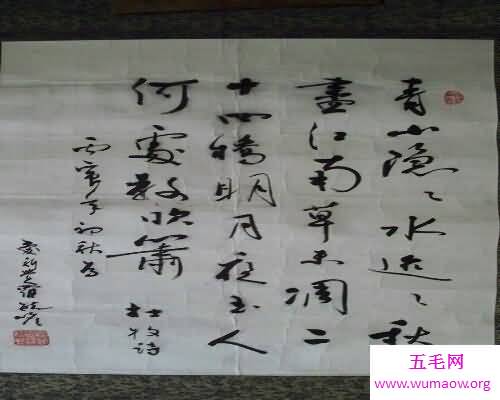 青山隐々水迢々秋
盡江南草未凋二
十四橋明月夜玉人
何處教吹簫 杜牧诗
丙寅年初秋为
五毛网
www.wumaow.org